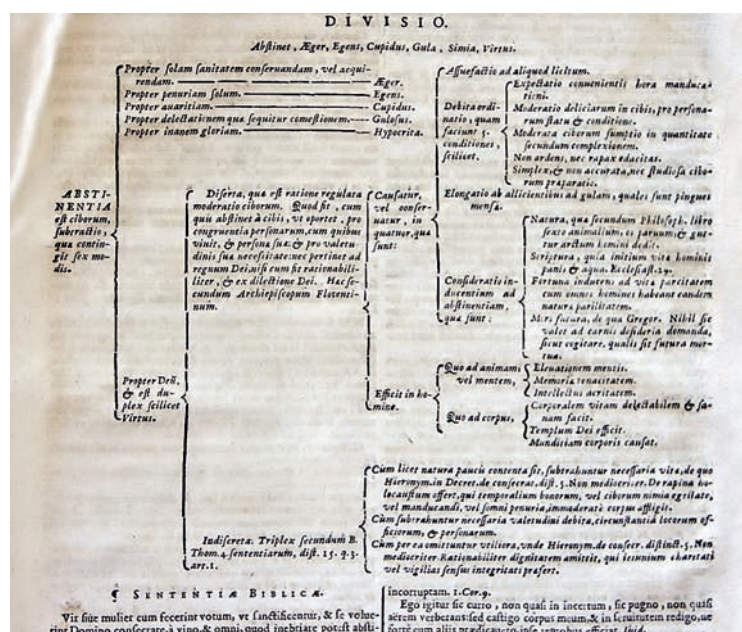 DIVISIO.
Abstinet, Æger, Egens, Cupidus, Gula, Simia, Virtus.
Propter solam sanitatem conseruandam, vel acqui-
rendam. Æger.
Propter penuriam solum. Egens.
Propter auaritiam. Cupidus.
Propter delectationem quæ sequitur comestionem. Gulosus.
Propter inanem gloriam. Hypocrita.
ABSTI-
NENTIA
est ciborum,
subtractio,
quæ contin-
git sex mo-
dis.
Propter Deū,
& est du-
plex scilicet
Virtus.
Discreta, quæ est ratione regulata
moderatio ciborum. Quod fit, cum
quis abstinet à cibis, vt oportet, pro
congruentia personarum, cum quibus
viuit, & personæ suæ: & pro valetu-
dinis suæ necessitate: nec pertinet ad
regnum Dei, nisi cum fit rationabi-
liter, & ex dilectione Dei. Hæc se-
cundum Archiepiscopum Florenti-
num.
Causatur,
vel conser-
uatur, in
quatuor, quæ
sunt:
Assuefactio ad aliquod licitum.
Debita ordi-
natio, quam
faciunt 5.
conditiones,
scilicet.
Expectatio conuenientis hora manduca-
tioni.
Moderatio deliciarum in cibis, pro persona-
rum statu & conditione.
Moderata ciborum sumptio in quantitate
secundum complexionem.
Non ardens, nec rapax edacitas.
Simplex, & non accurata, nec studiosa cibo-
rum præparatio.
Elongatio ab allicientibus ad gulam, quales sunt pingues
mensæ.
Consideratio in-
ducentium ad
abstinentiam,
quæ sunt:
Natura, quæ secundum Philosoph. libro
sexto animalium, os paruum, & gut-
tur arctum homini dedit.
Scriptura, quia initium vitæ hominis
panis & aqua. Ecclesiast. 29.
Fortuna inducens ad vitæ parcitatem
cum omnes homines habeant eandem
naturæ parilitatem.
Mors futura, de qua Gregor. Nihil sic
valet ad carnis desideria domanda,
sicut cogitare, qualis sit futura mor-
tua.
Efficit in ho-
mine.
Quo ad animam,
vel mentem,
Eleuationem mentis.
Memoriæ tenacitatem.
Intellectus acritatem.
Quo ad corpus,
Corporalem vitam delectabilem & sa-
nam facit.
Templum Dei efficit.
Munditiam corporis causat.
Indiscreta. Triplex secundum B.
Thom. 4. sententiarum, dist. 15. q. 3.
art. 1.
Cùm licet natura paucis contenta sit, subtrahuntur necessaria vitæ, de quo
Hieronym. in Decret. de consecrat. dist. 5. Non mediocriter. De rapina ho-
locaustum offert, qui temporalium bonorum, vel ciborum nimia egestate,
vel manducandi, vel somni penuria, immoderatè corpus affligit.
Cùm subtrahuntur necessaria valetudini debita, circunstantia locorum of-
ficiorum, & personarum.
Cùm per ea omittuntur vtiliora, vnde Hieronym. de consecr. distinct. 5. Non
mediocriter. Rationabiliter dignitatem amittit, qui ieiunium charitati
vel vigilias sensus integritati præfert.
¶ SENTENTIÆ BIBLICÆ.
Vir siue mulier cum fecerint votum, vt sanctificentur, & se volue-
rint Domino consecrare, à vino & omni, quod inebriare potest absti-
incorruptam. 1. Cor. 9.
Ego igitur sic curro, non quasi in incertum, sic pugno, non quasi
aërem verberans: sed castigo corpus meum, & in seruitutem redigo, ne
fortè cum aliis prædicauero, ipse reprobus efficiar. Ibid.